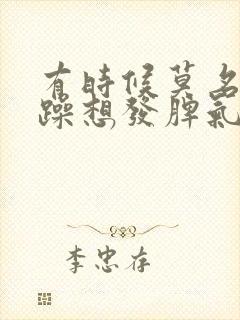 有時候莫名
躁想發脾氣
李忠存